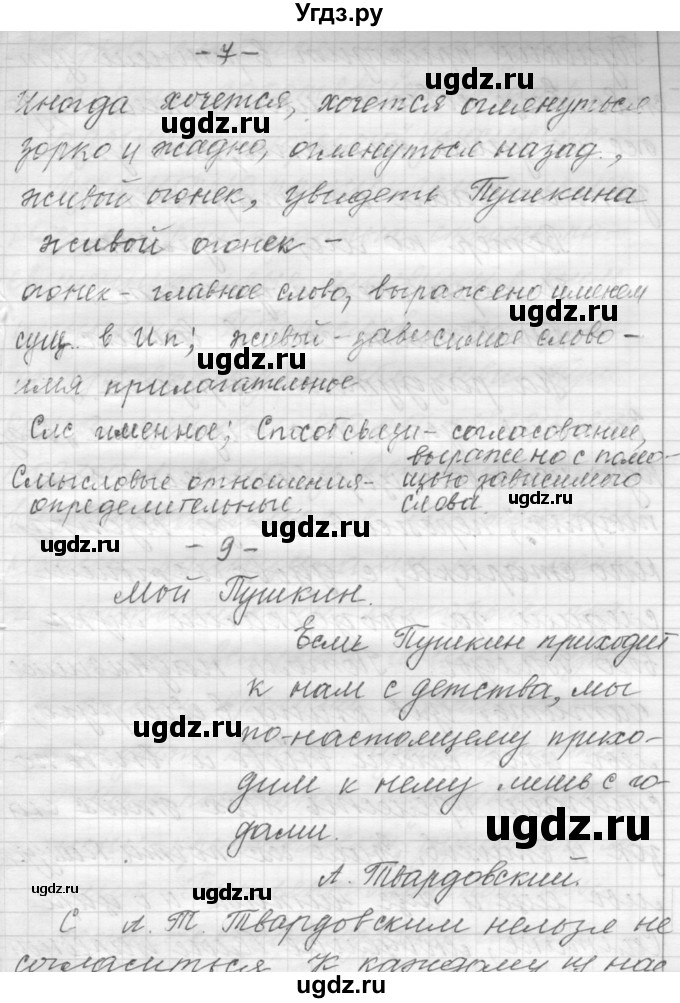 Угдз.ру
- 7 -
Иногда хочется, хочется оглянуться
зорко и жадно, оглянуться назад.,
живой огонек, увидеть Пушкина
живой огонек -
огонек - главное слово, выражено именем
сущ. в Ип; живый - зависимое слово -
имя прилагательное
Слс именное; Способ связи - согласование,
выражено с помо-
Смысловые отношения - щью зависимого
определительные. слова.
- 9 -
Мой Пушкин.
Если Пушкин приходит
к нам с детства, мы
по-настоящему прихо-
дим к нему лишь с го-
дами.
А. Твардовский.
С А. Т. Твардовским нельзя не
согласиться. К каждому из нас
ugdz.ru
ugdz.ru
ugdz.ru
ugdz.ru
ugdz.ru
ugdz.ru
ugdz.ru
ugdz.ru
ugdz.ru
ugdz.ru
ugdz.ru
ugdz.ru
ugdz.ru